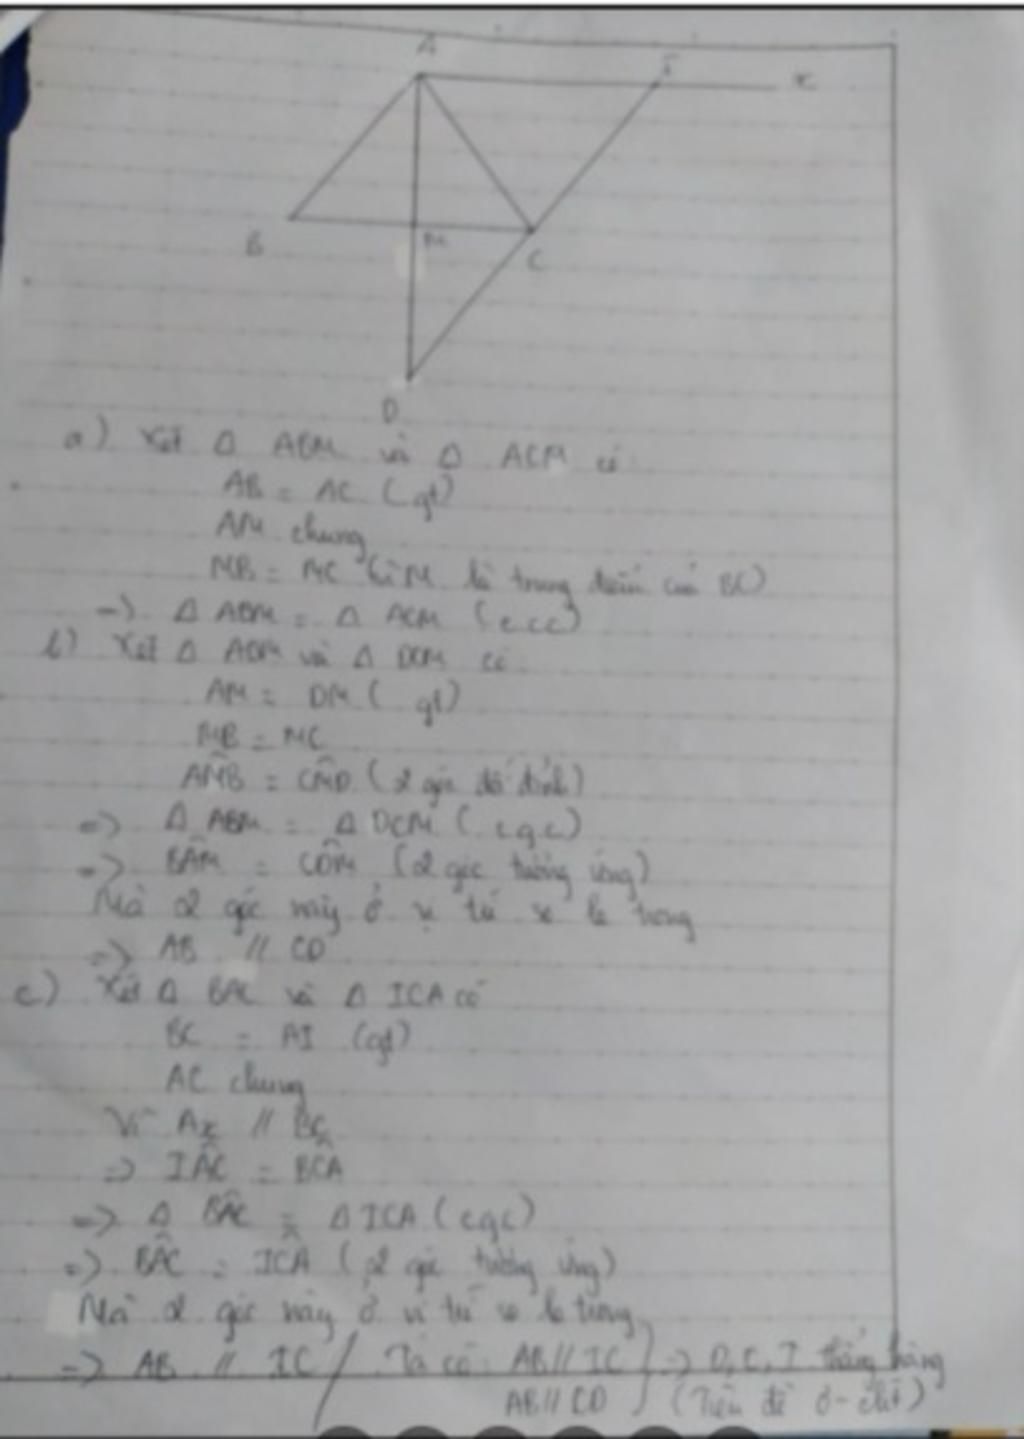 A
I
x
B
M
C
D
a) Xét Δ ABM và Δ ACM có:
AB = AC (gt)
AM chung
MB = MC (vì M là trung điểm của BC)
=> Δ ABM = Δ ACM (c.c.c)
b) Xét Δ ABM và Δ DCM có:
AM = DM (gt)
MB = MC
AM̂B = CM̂D (2 góc đối đỉnh)
=> Δ ABM = Δ DCM (c.g.c)
=> BÂM = CD̂M (2 góc tương ứng)
Mà 2 góc này ở vị trí so le trong
=> AB // CD
c) Xét Δ BAC và Δ ICA có
BC = AI (gt)
AC chung
Vì Ax // BC
=> IÂC = BĈA
=> Δ BAC = Δ ICA (cgc)
=> BÂC = IĈA (2 góc tương ứng)
Mà 2 góc này ở vị trí so le trong
=> AB // IC / Ta có: AB // IC } => D, C, I thẳng hàng
AB // CD (Tiên đề Ơ-clit)